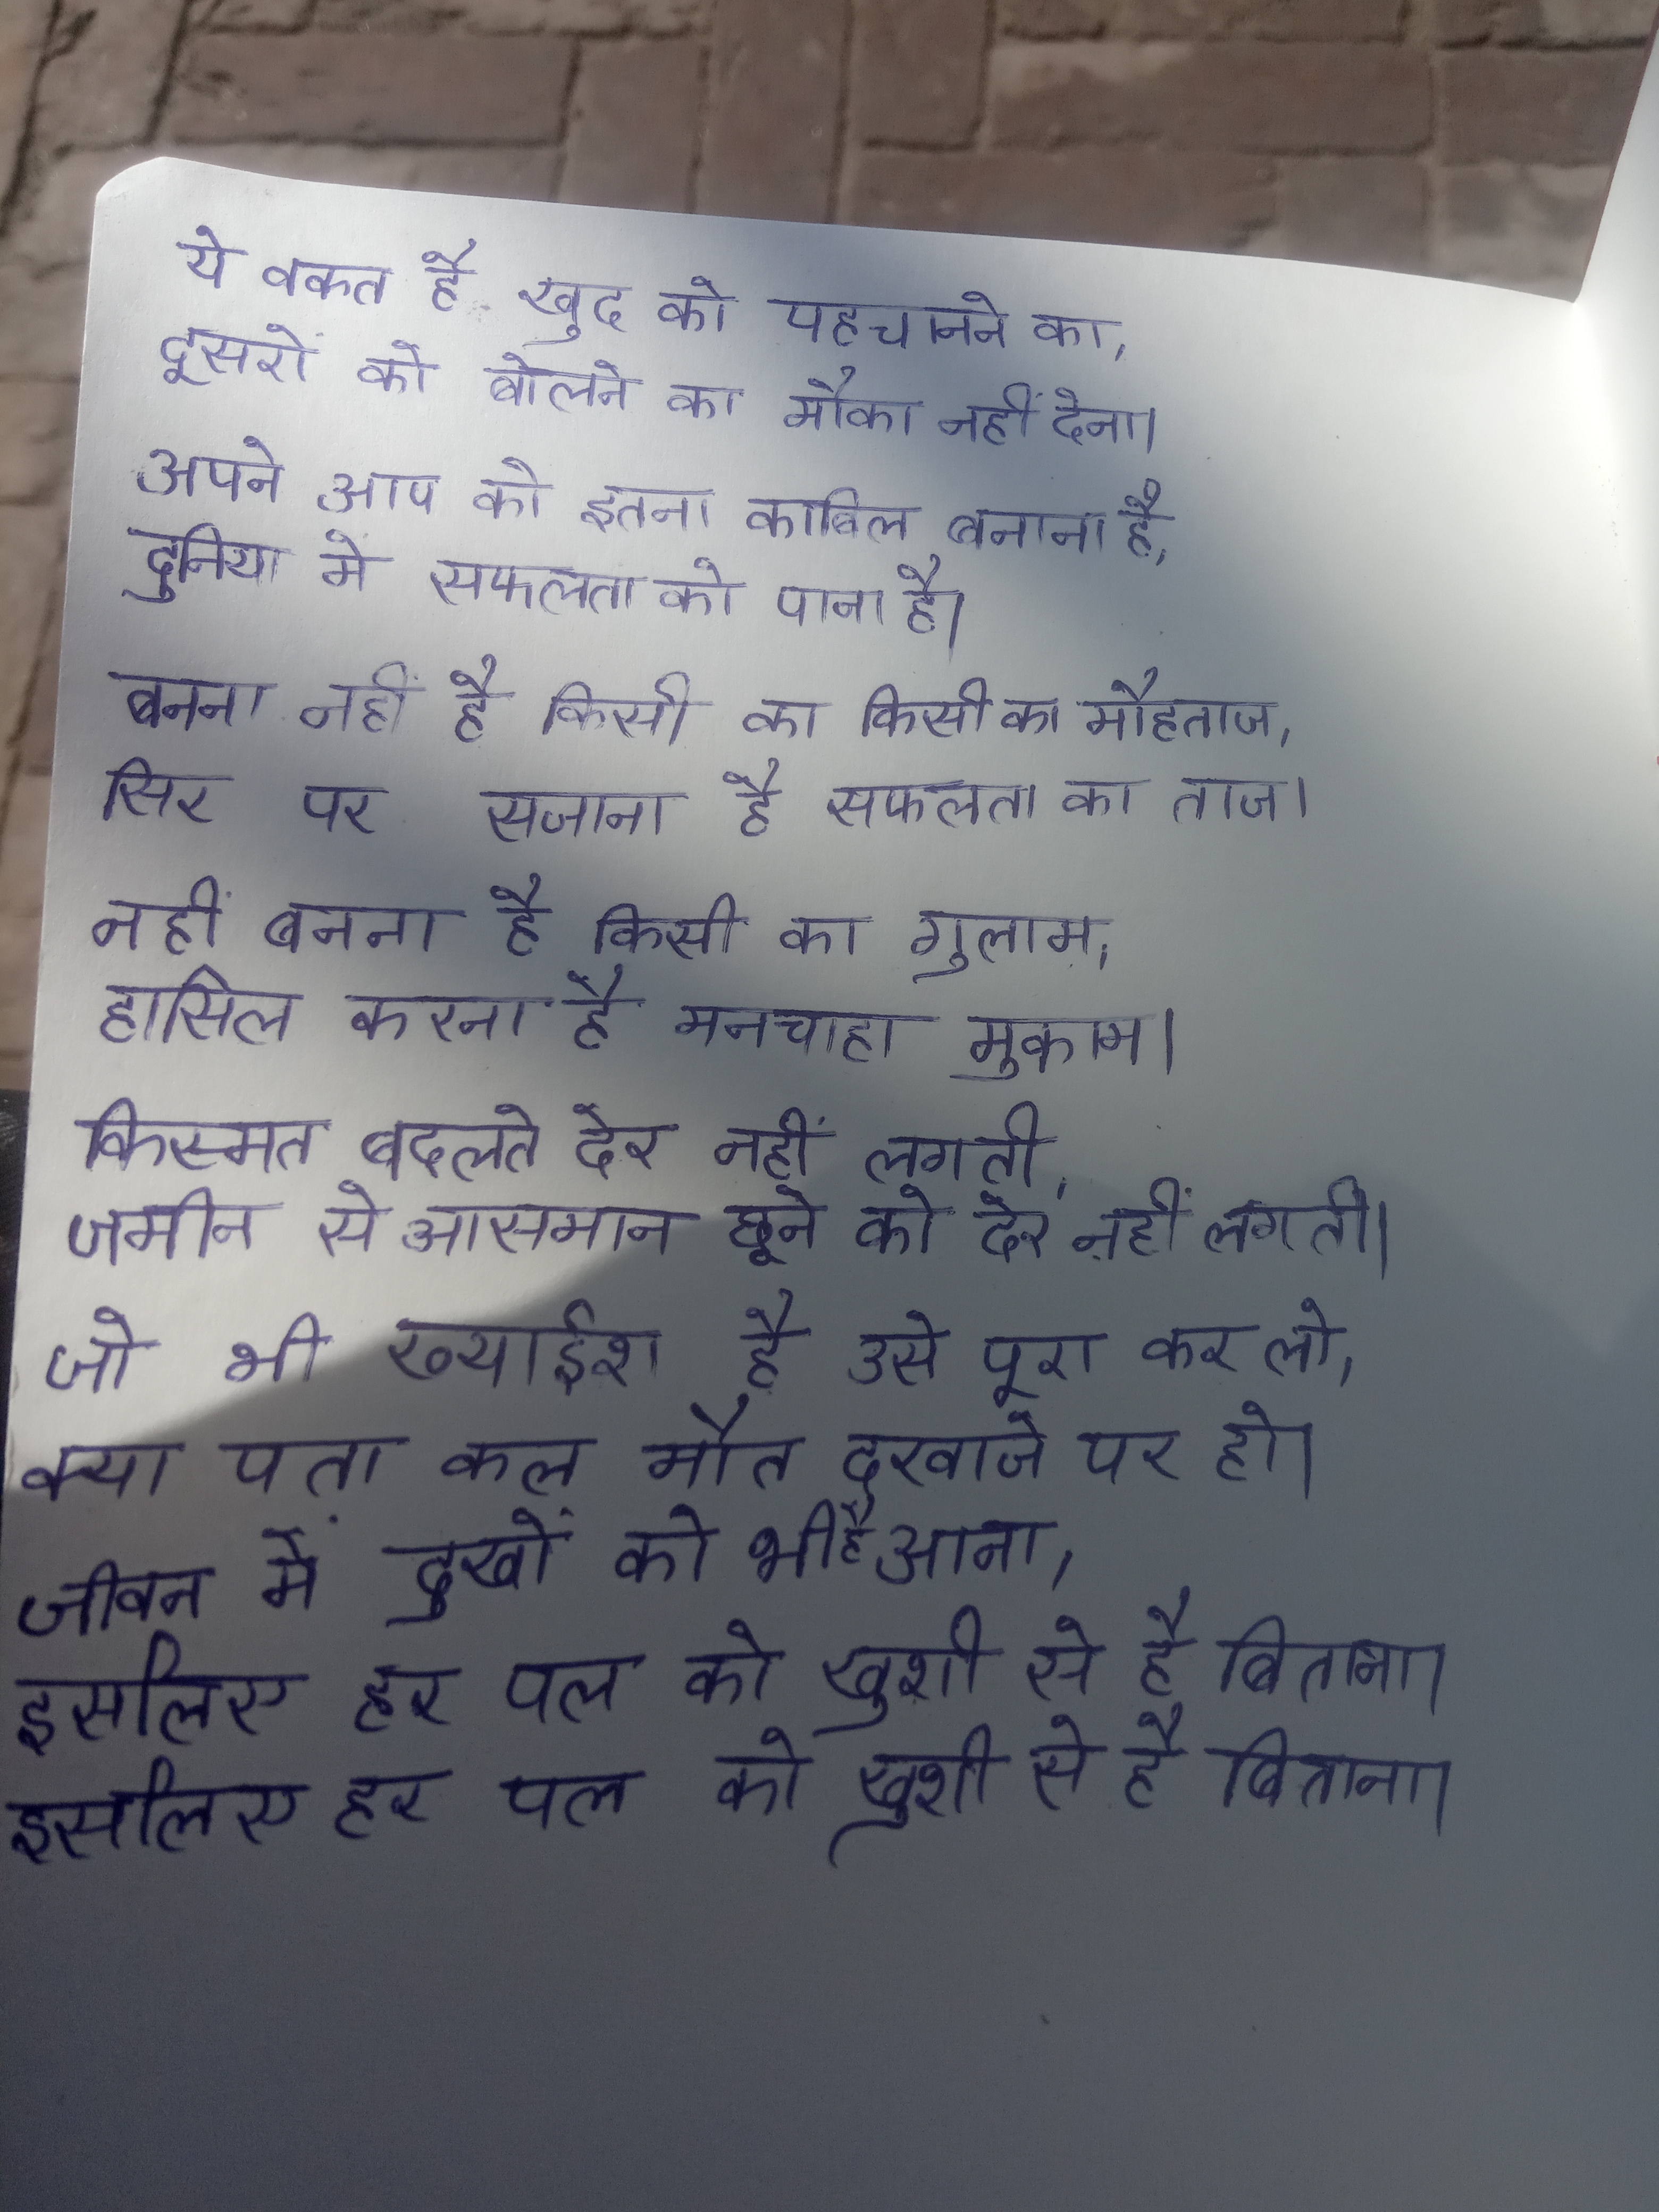 ये वकत है खुद को पहचानने का,
दूसरों को बोलने का मौका नहीं देना।
अपने आप को इतना काबिल बनाना है,
दुनिया में सफलता को पाना है।
बनना नहीं है किसी का किसी का मौहताज,
सिर पर सजाना है सफलता का ताज।
नहीं बनना है किसी का गुलाम,
हासिल करना है मनचाहा मुकाम।
किस्मत बदलते देर नहीं लगती,
जमीन से आसमान छूने को देर नहीं लगती।
जो भी ख्याईश है उसे पूरा कर लो,
क्या पता कल मौत दरवाजे पर हो।
जीवन में दुखों को भी है आना,
इसलिए हर पल को खुशी से है बिताना।
इसलिए हर पल को खुशी से है बिताना।